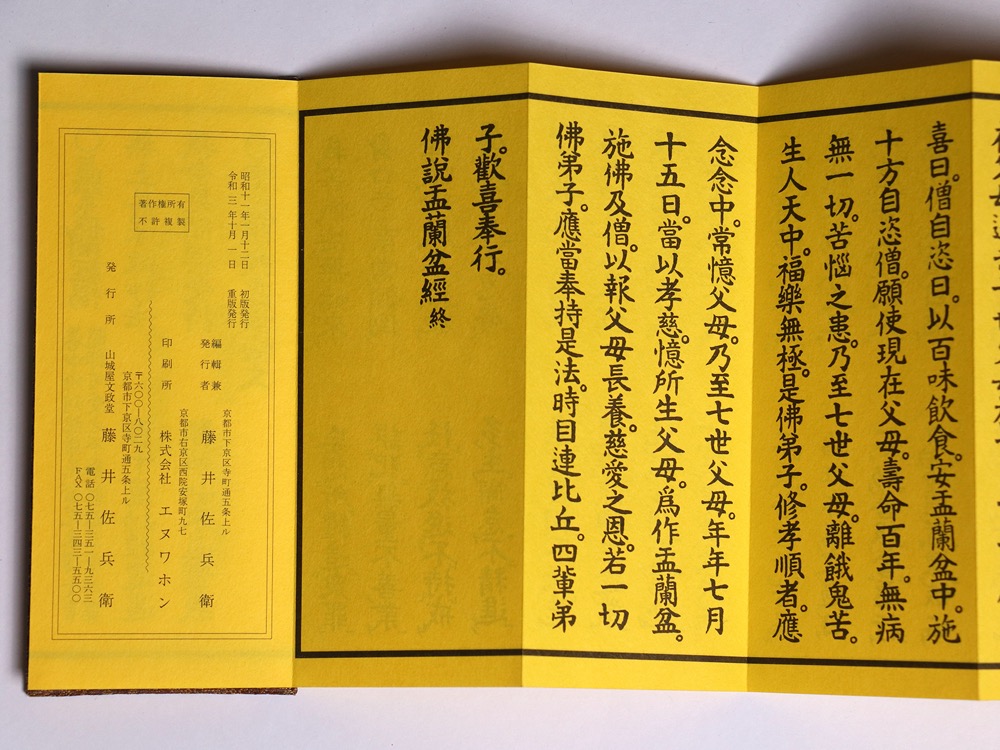 喜日。僧自恣日。以百味飲食。安盂蘭盆中。施
十方自恣僧。願使現在父母。壽命百年。無病
無一切。苦惱之患。乃至七世父母。離餓鬼苦。
生人天中。福樂無極。是佛弟子。修孝順者。應
念念中。常憶父母。乃至七世父母。年年七月
十五日。當以孝慈。憶所生父母。爲作盂蘭盆。
施佛及僧。以報父母長養。慈愛之恩。若一切
佛弟子。應當奉持是法。時目連比丘。四輩弟
子。歡喜奉行。
佛說盂蘭盆經 終
昭和十一年一月十二日 初版発行
令和三年十月一日 重版発行
著作権所有
不許複製
京都市下京区寺町通五条上ル
編輯兼
発行者 藤井佐兵衛
京都市右京区西院安塚町九七
印刷所 株式会社 エヌワホン
〒六〇〇―八〇二九
京都市下京区寺町通五条上ル
発行所 山城屋文政堂 藤井佐兵衛
電話 〇七五―三五一―九三六三
FAX 〇七五―三四三―五五〇〇